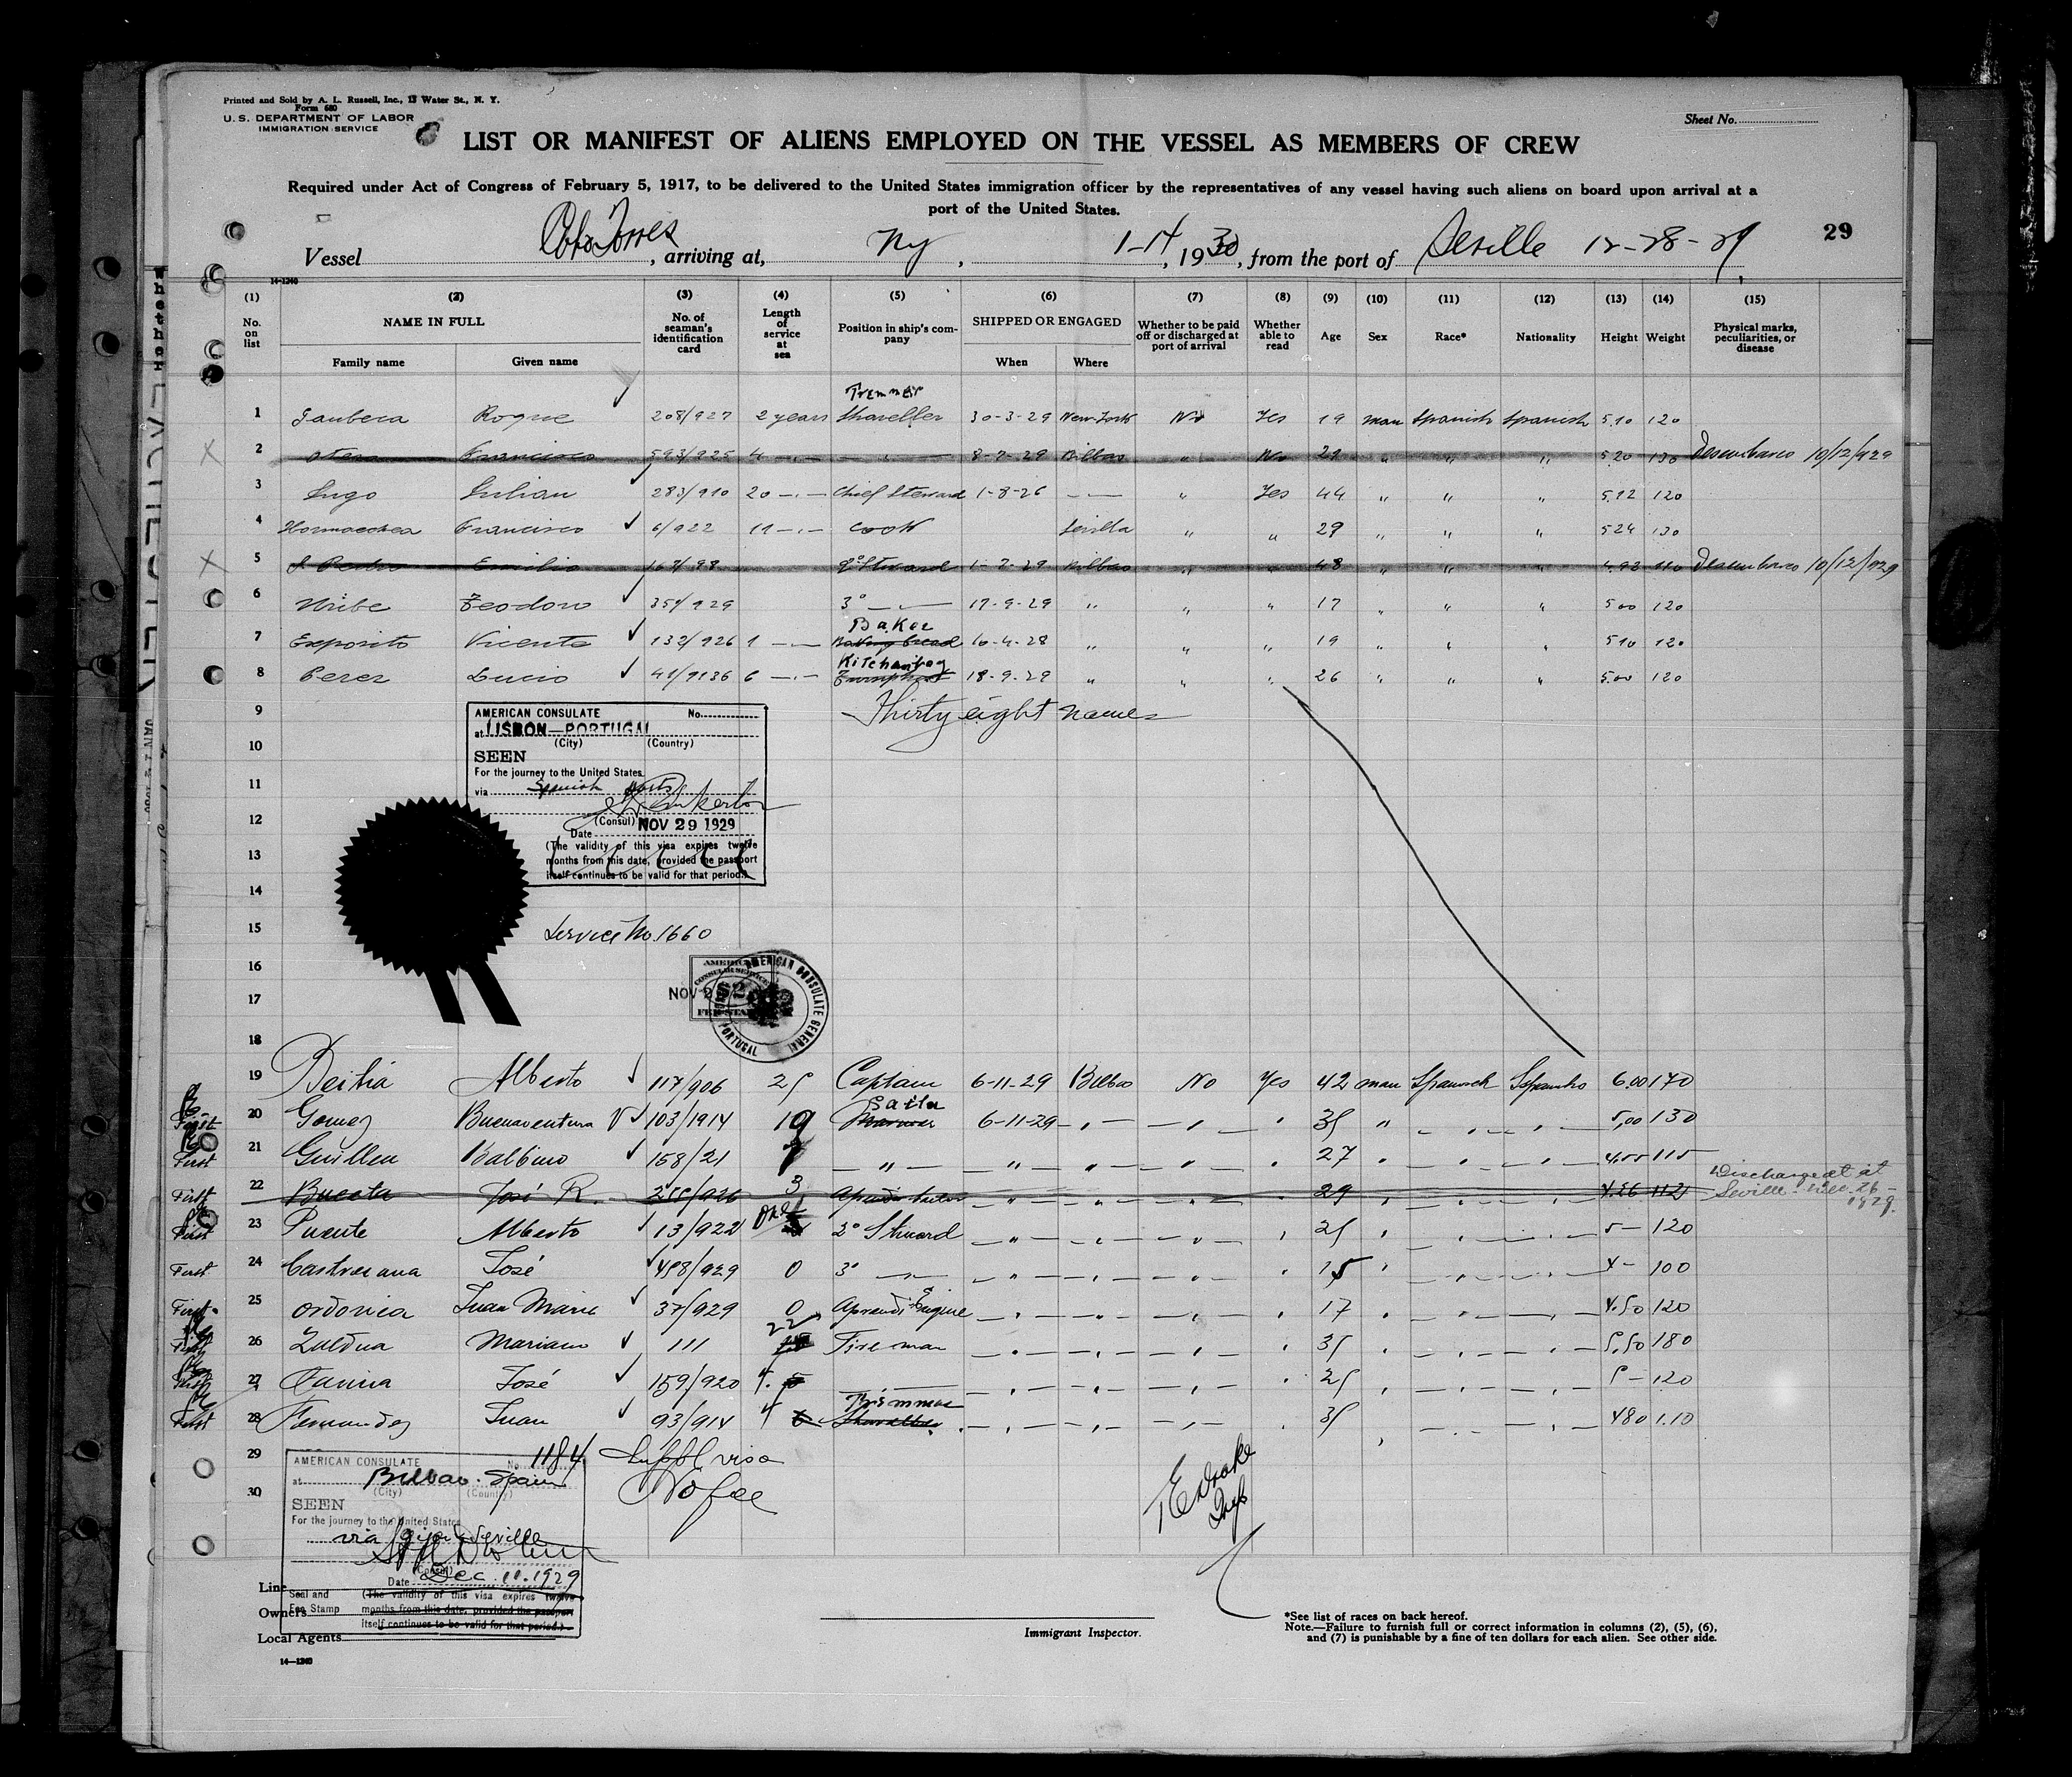 Printed and Sold by A. L. Russell, Inc., 13 Water St., N. Y.
Form 680
U. S. DEPARTMENT OF LABOR
IMMIGRATION SERVICE
Sheet No.
LIST OR MANIFEST OF ALIENS EMPLOYED ON THE VESSEL AS MEMBERS OF CREW
Required under Act of Congress of February 5, 1917, to be delivered to the United States immigration officer by the representatives of any vessel having such aliens on board upon arrival at a
port of the United States.
29
Vessel Torres, arriving at, Ny, 1-14, 1930, from the port of Seville 12-28-29
14-1240
(1) (2) (3) (4) (5) (6) (7) (8) (9) (10) (11) (12) (13) (14) (15)
No. on list
NAME IN FULL
Family name Given name
No. of seaman's identification card
Length of service at sea
Position in ship's company
SHIPPED OR ENGAGED
When Where
Whether to be paid off or discharged at port of arrival
Whether able to read
Age Sex Race* Nationality Height Weight
Physical marks, peculiarities, or disease
Tremmer
1 Roque 208/927 2 years Shoveller 30-3-29 New-York No Yes 19 man Spanish Spanish 5.10 120
2 Otero Francisco 593/925 4 -.- 8-7-29 Bilbao " No 29 " " " 5.20 130 Desembarco 10/12/929
3 Lugo Julian 283/910 20 -.- Chief Steward 1-8-26 " Yes 44 " " " 5.12 120
4 Hormaechea Francisco 6/922 11 -.- Cook Sevilla " " 29 " " " 5.24 130
5 Emilio 2º Steward 1-7-29 Bilbao " " 48 " " " 4.92 110 Desembarco 10/12/929
6 Uribe Teodoro 351/929 3º 17-9-29 " " " 17 " " " 5.00 120
Baker
7 Exposito Vicente 132/926 1 10-4-28 " " " 19 " " " 5.10 120
Kitchenboy
8 Perez Lucio 6 -.- 18-9-29 " " " 26 " " " 5.00 120
9 Thirty eight names
10
11
12
13
14
15
16
17
18
AMERICAN CONSULATE No.
at LISBON—PORTUGAL
(City) (Country)
SEEN
For the journey to the United States
via Spanish Ports
(Consul)
Date NOV 29 1929
(The validity of this visa expires twelve
months from this date, provided the passport
itself continues to be valid for that period.)
Service No. 1660
NOV 2
AMERICAN CONSULATE GENERAL
PORTUGAL
19 Beitia Alberto 117/906 25 Captain 6-11-29 Bilbao No Yes 42 man Spanish 6.00 170
Sailor
20 First Gomez Buenaventura 103/1914 19 Mariner 6-11-29 35 " 5,00 130
21 First Guillen Balbino 158/21 7 " " 27 4.55 115
22 First José R. 3 29 4.26 112 Discharged at
Seville Dec. 26 -
1929
23 First Puente Alberto 13/922 2º Steward 25 5- 120
24 First Castresana José 458/929 0 3º 15 4- 100
25 First Juan Maria 37/929 0 17 4.50 120
26 First Zaldua Mariano 111 22 Fireman 35 5,50 180
27 First José 159/920 25 5- 120
Trimmer
28 First Fernandez Juan 93/914 4 35 480 1.10
29
30
AMERICAN CONSULATE No. 1184
at Bilbao. Spain
(City) (Country)
SEEN
For the journey to the United States
via Gijon Seville
(Consul)
Date Dec. 11. 1929
Seal and
Fee Stamp
(The validity of this visa expires twelve
months from this date, provided the passport
itself continues to be valid for that period.)
Suppl visa
No fee
Drake
Line
Owners
Local Agents
14—1240
Immigrant Inspector.
*See list of races on back hereof.
Note.—Failure to furnish full or correct information in columns (2), (5), (6),
and (7) is punishable by a fine of ten dollars for each alien. See other side.